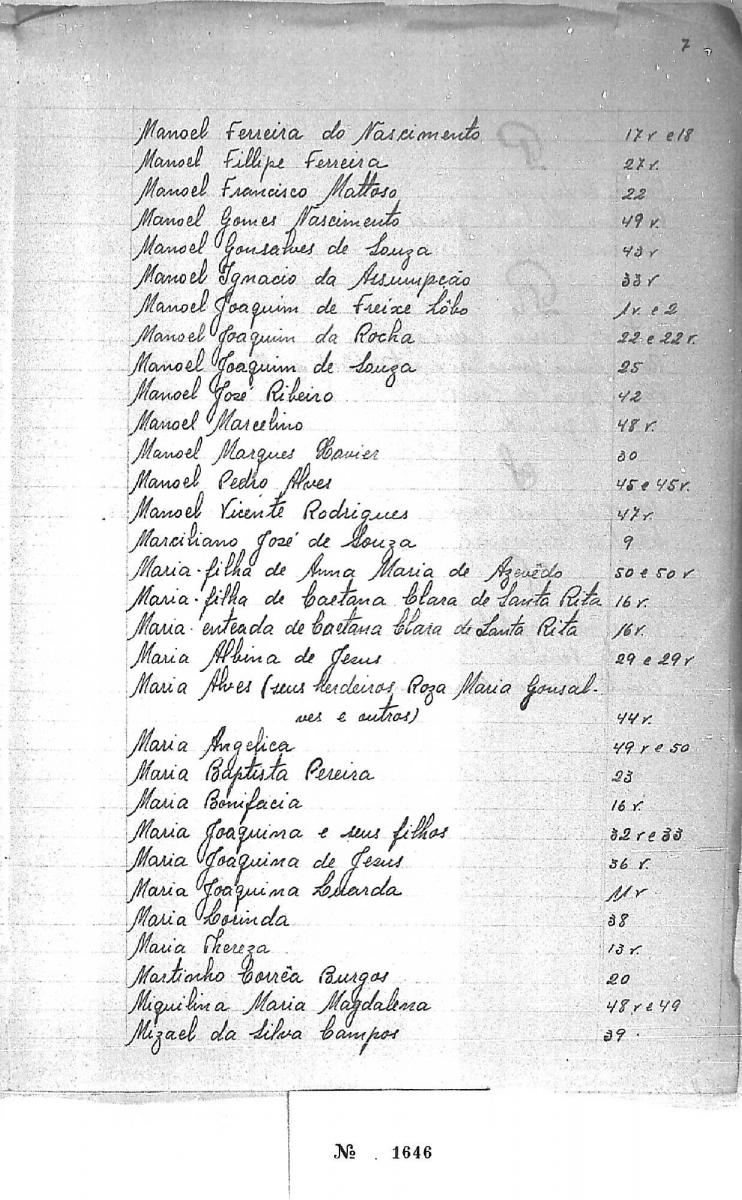 7
Manoel Ferreira do Nascimento 17 v e 18
Manoel Fillipe Ferreira 27 v.
Manoel Francisco Mattoso 22
Manoel Gomes Nascimento 49 v.
Manoel Gonsalves de Souza 43 v
Manoel Ignacio da Assumpção 33 v
Manoel Joaquim de Freixe Lôbo 1 v. e 2
Manoel Joaquim da Rocha 22 e 22 v.
Manoel Joaquim de Souza 25
Manoel José Ribeiro 42
Manoel Marcelino 48 v.
Manoel Marques Xavier 30
Manoel Pedro Alves 45 e 45 v.
Manoel Vicente Rodrigues 47 v.
Marciliano José de Souza 9
Maria - filha de Anna Maria de Azevêdo 50 e 50 v
Maria - filha de Caetana Clara de Santa Rita 16 v.
Maria - enteada de Caetana Clara de Santa Rita 16 v.
Maria Albina de Jesus 29 e 29 v
Maria Alves (seus herdeiros, Roza Maria Gonsal-
ves e outros) 44 v.
Maria Angelica 49 v e 50
Maria Baptista Pereira 23
Maria Bonifacia 16 v.
Maria Joaquina e seus filhos 32 v e 33
Maria Joaquina de Jesus 36 v.
Maria Joaquina Luarda 11 v
Maria Lorinda 38
Maria Thereza 13 v.
Martinho Corrêa Burgos 20
Miquilina Maria Magdalena 48 v e 49
Mizael da Silva Campos 39
№ 1646